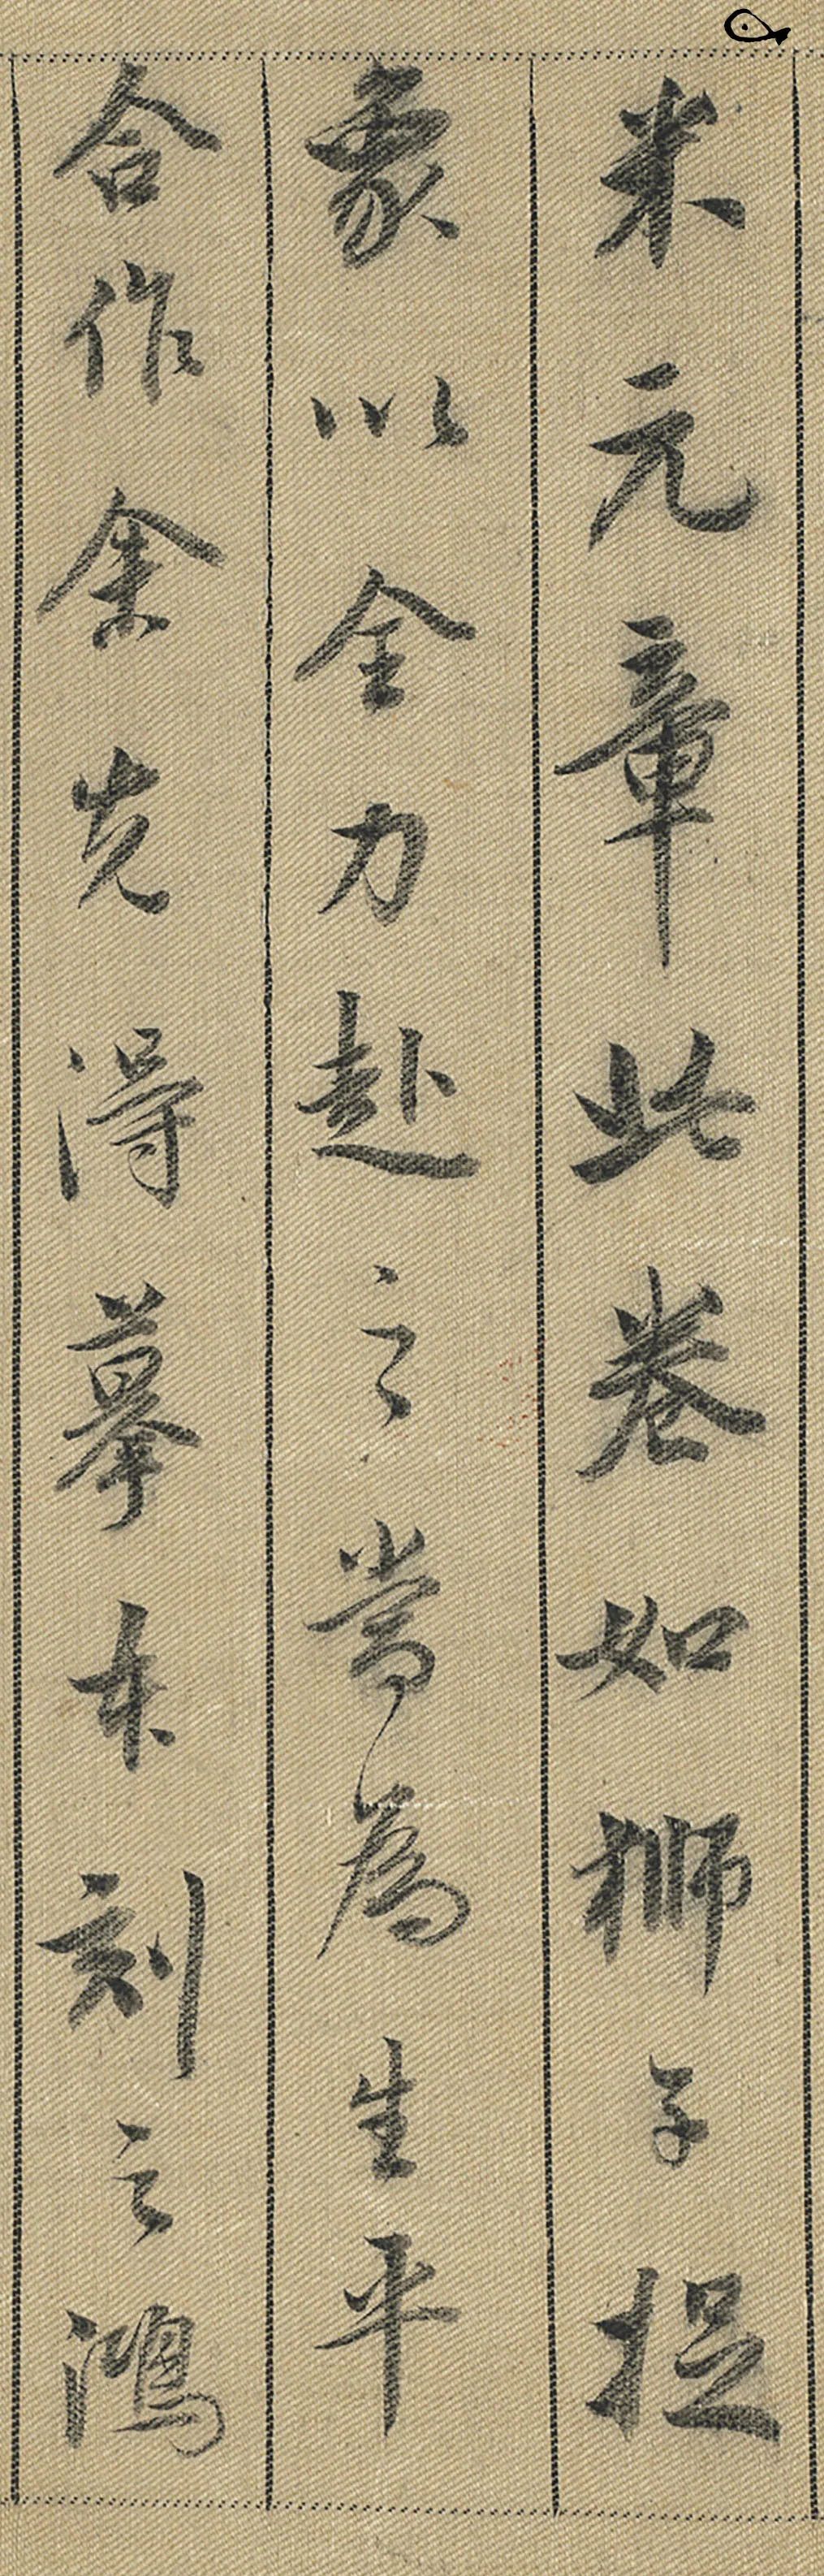 米元章此卷如狮子捉
象以全力赴之當為生平
合作余先得摹本刻之鴻